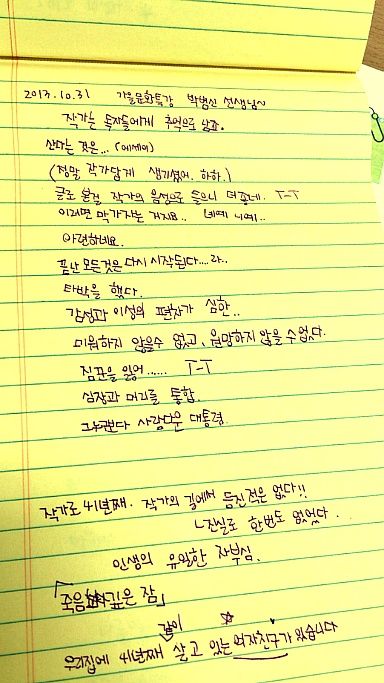 2013.10.31 가을문화특강 박범신 선생님~
작가는 독자들에게 추억으로 남고.
산다는 것은... (에세이)
(정말 작가답게 생기셨어. 하하.)
글로 본걸 작가의 음성으로 들으니 더 좋네. T-T
이러면 막가자는 거지요.. 네네 니예..
아련하네요.
끝난 모든것은 다시 시작된다....라..
타박을 했다.
감성과 이성의 편차가 심한..
미워하지 않을수 없고, 원망하지 않을 수 없다.
짐꾼을 잃어...... T-T
심장과 머리를 통합.
그 누구보다 사랑다운 대통령.
작가로 41년째. 작가의 길에서 등진적은 없다!!
ㄴ진실로 한번도 없었다.
인생의 유일한 자부심.
「죽음보다 깊은 잠」
같이
우리집에 41년째 살고 있는 여자친구가 있습니다